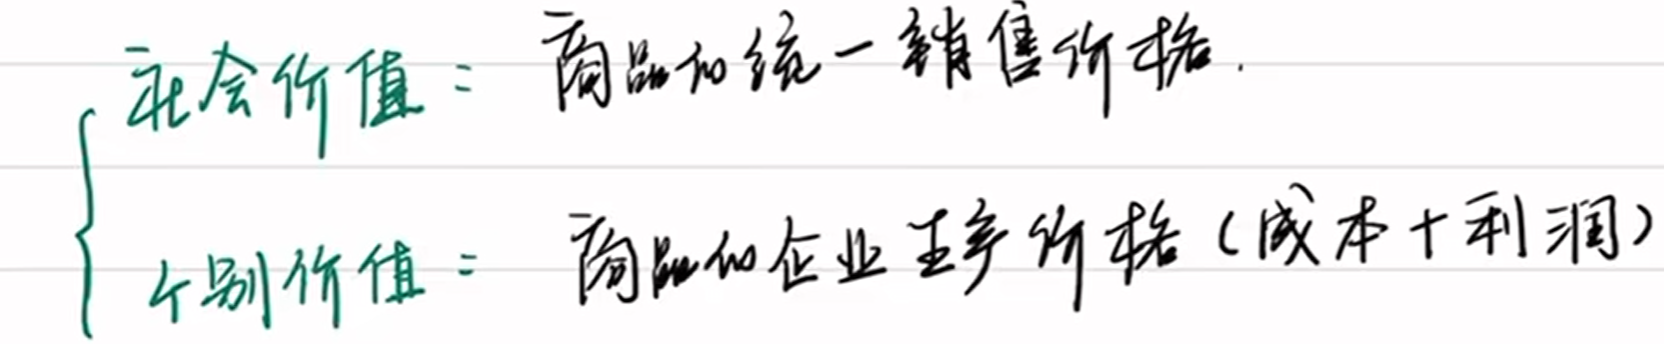 社会价值：商品的统一销售价格.
个别价值：商品的企业生产价格（成本+利润）